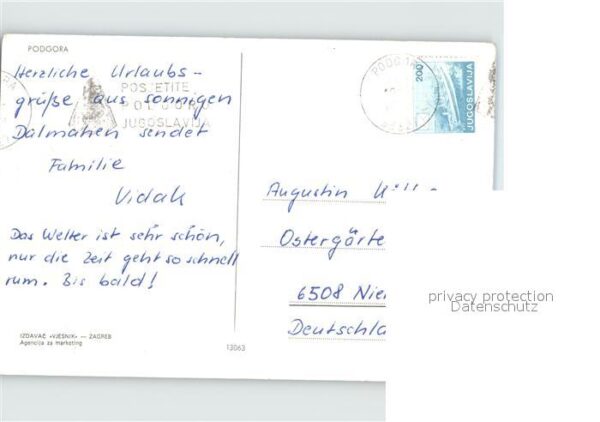 PODGORA
Herzliche Urlaubs-
grüße aus sonnigen
Dalmatien sendet
Familie
Vidak
Das Wetter ist sehr schön,
nur die Zeit geht so schnell
rum. Bis bald!
IZDAVAČ «VJESNIK» — ZAGREB
Agencija za marketing
13063
POSJETITE
PODGORU
JUGOSLAVIJA
PODGORA
200
JUGOSLAVIJA
Augustin
Ostergärte
6508 Nie
Deutschla
privacy protection
Datenschutz